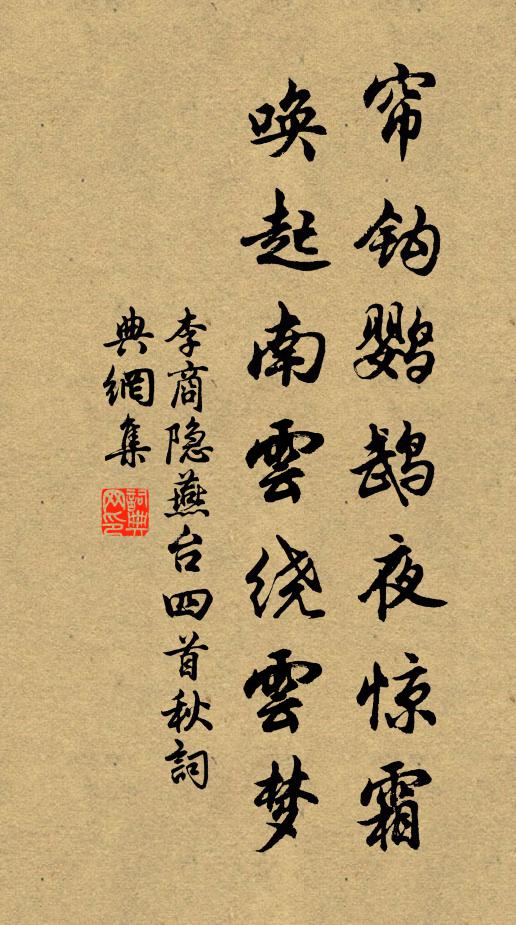 帘钩鹦鹉夜惊霜
唤起南雲绕雲梦
李商隐燕台四首秋詞
典網集
詞典网印